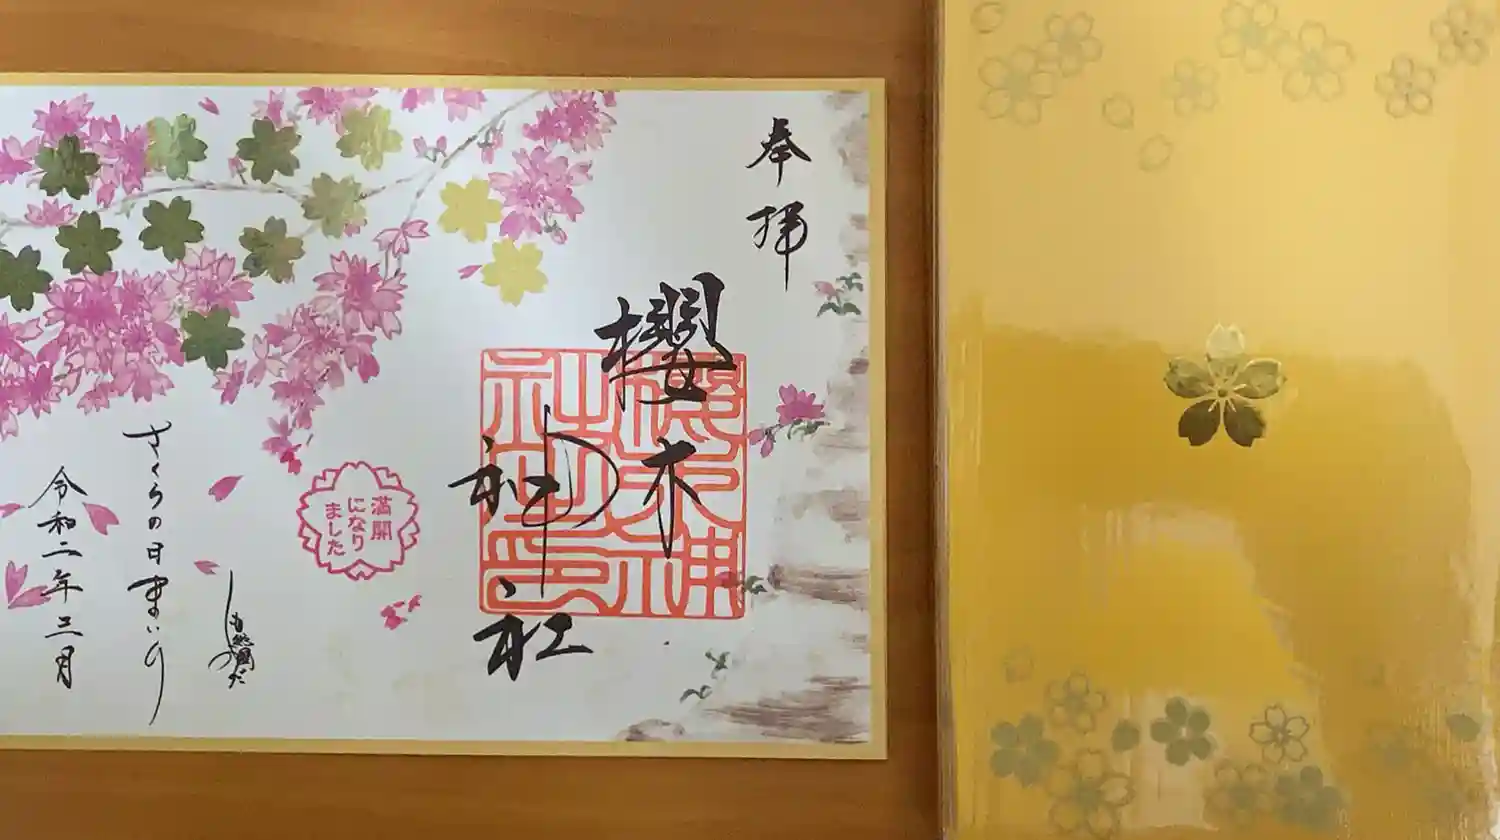 奉拝
櫻木
神社
櫻木神
社社印
満開
になり
ました
さくらの日まいり
令和二年三月